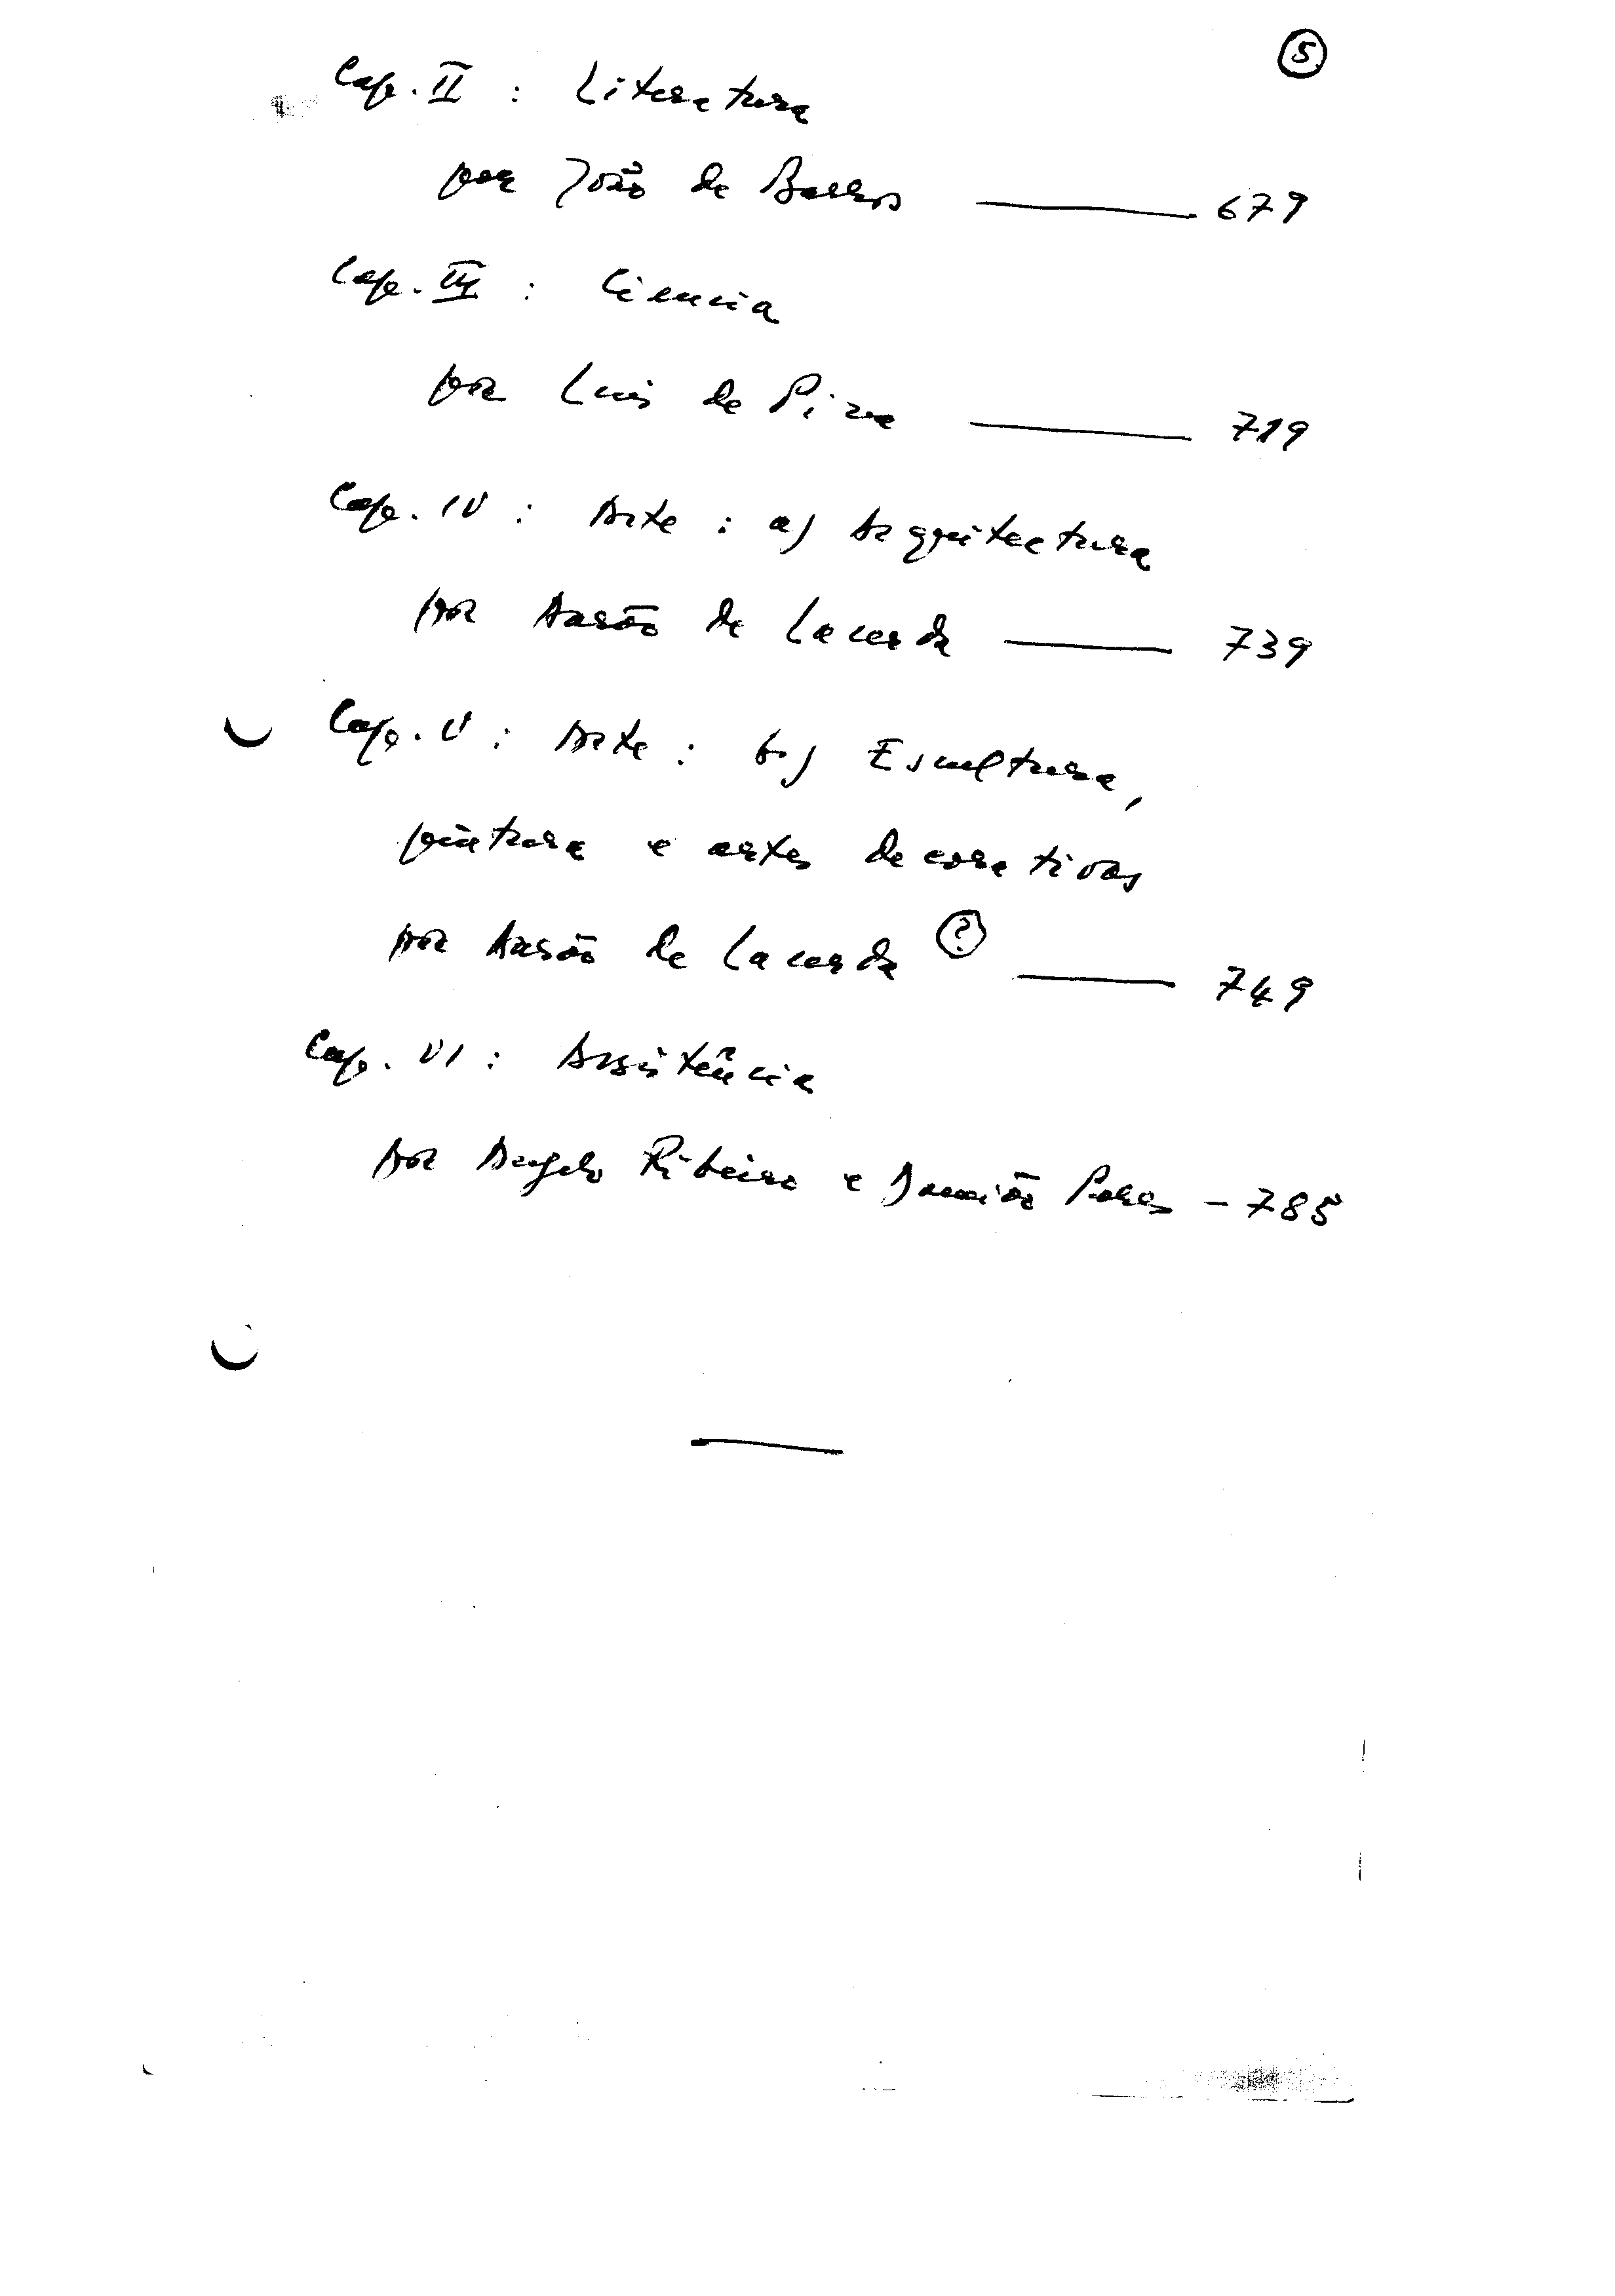 5
Cap. II : Literatura
por João de Barros — 679
Cap. III : Ciencia
por Luis de Pina — 719
Cap. IV : Arte : a) Arquitectura
por Aarão de Lacerda — 739
Cap. V : Arte : b) Escultura,
pintura e artes decorativas
por Aarão de Lacerda ? — 749
Cap. VI : Assistência
por Angelo Ribeiro e Damião Peres - 785